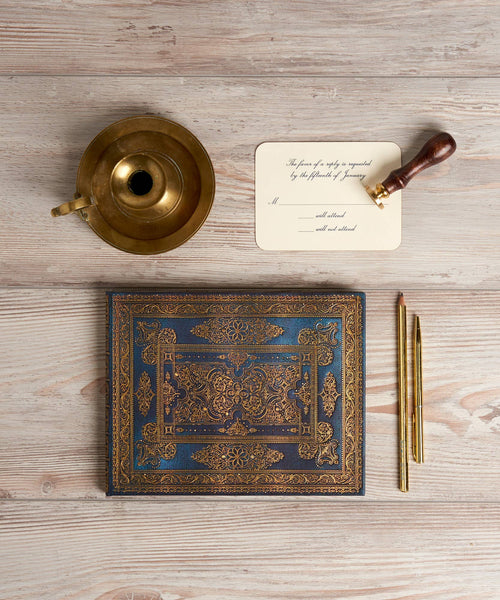 The favor of a reply is requested
by the fifteenth of January
M
will attend
will not attend